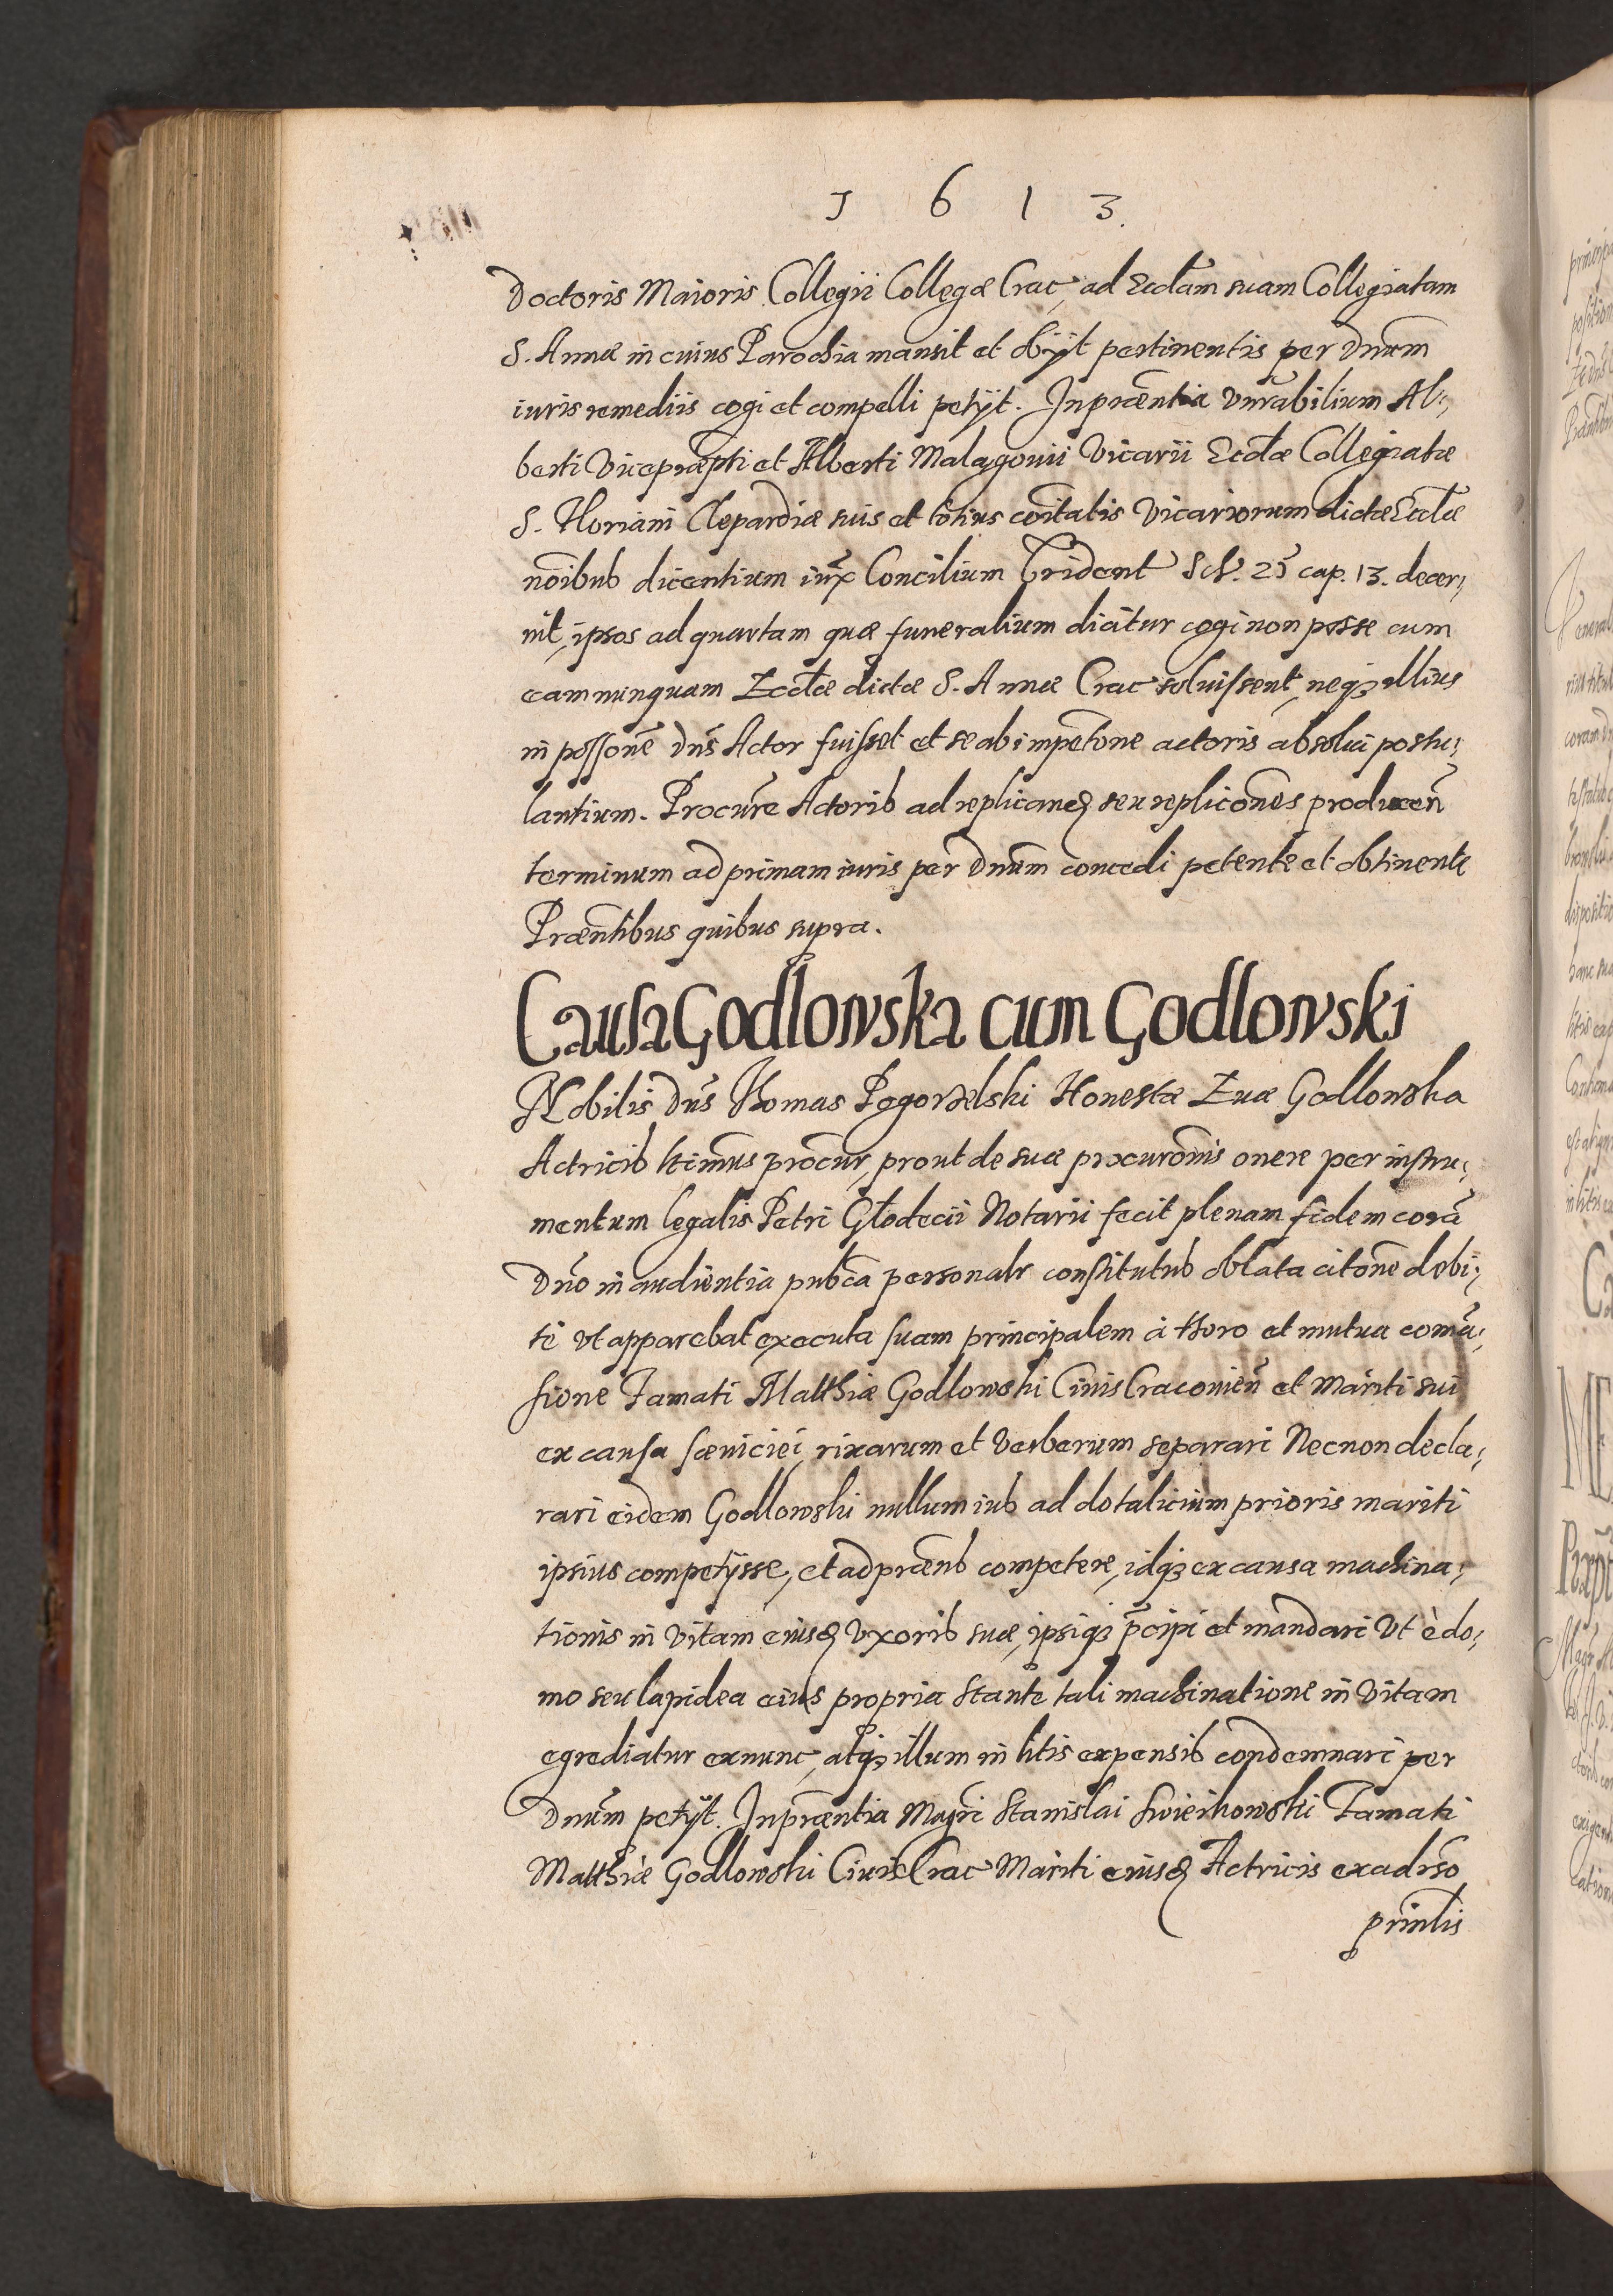 1 6 1 3.
Doctoris Maioris Collegii Collegæ Crac, ad Eccłam suam Collegiatam
S. Annæ in cuius Parochia mansit et obijt pertinentis per Dnum̄
iuris remediis cogi et compelli petijt. In præntia Vnrãbilium Al-
berti Vicepræpti et Alberti Malagonii Vicarii Eccłæ Collegiatæ
S. Floriani Clepardiæ suis et totius cõitatis Vicariorum dictæ Eccłæ
nõibus dicentium iuxᵃ Concilium Trident Seſ. 25 cap. 13. decer-
nit, ipsos ad quartam quæ funeralium dicitur cogi non posse cum
eam nunquam Eccłæ dictæ S. Annæ Crac soluiſsent, neqꝫ illius
in poſſonẽ Dns̃ Actor fuiſset et se ab impetõne actoris absolui postu-
lantium. Procurẽ Actoris ad replicanꝺ seu replicõnes producen̄
terminum ad primam iuris per Dnum̄ concedi petente et obtinente
Præntibus quibus supra.
Cauſa Godlowska cum Godlowski
Nobilis Dns̃ Thomas Pogorzelski Honestæ Euæ Godlowska
Actricis ltimus procur, prout de suæ procurõnis onere per inſtru-
mentum legalis Petri Głodecii Notarii fecit plenam fidem corã
Dño in audientia publca personalr conſtitutus oblata citõne debi-
tè vt apparebat executa ſuam principalem à thoro et mutua comũ-
ſione Famati Matthiæ Godlowski Ciuis Cracouien̄ et Mariti sui
ex cauſa ſæuiciei, rixarum et Verberum separari Necnon decla-
rari eidem Godlowski nullum ius ad dotalicium prioris mariti
ipsius competijsse, et ad præns competere, idqꝫ ex causa machina-
tionis in Vitam eiusꝺ Vxoris suæ, ipsiqꝫ p̃cipi et mandari Vt è do-
mo seu lapidea eius propria Stante tali machinatione in Vitam
egrediatur exnunc, atqꝫ illum in litis expensis condemnari per
Dnum̄ petijt. In præntia Magri Stanislai Swieihowski Famati
Matthiæ Godlowski Ciuis Crac Mariti eiusꝺ Actricis ex adrſo
prinłis